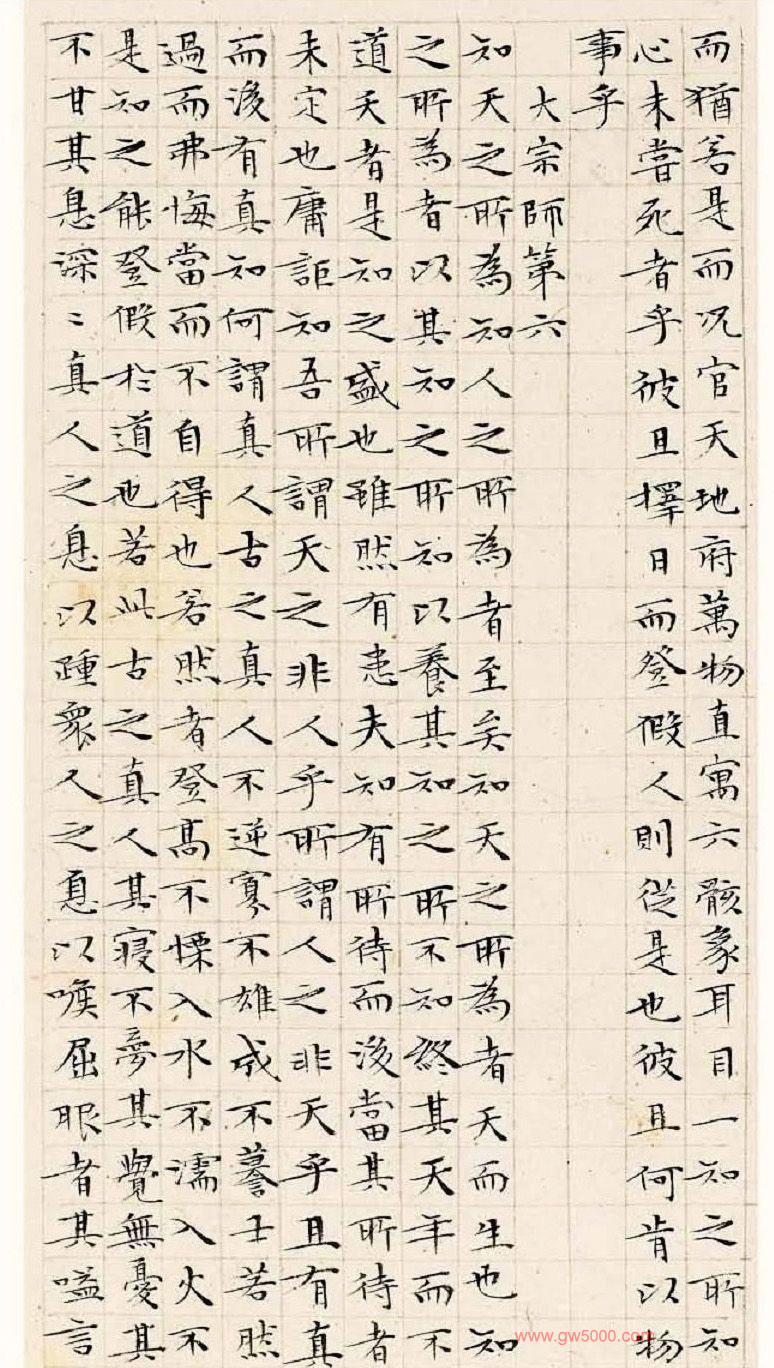 而猶若是而况官天地府萬物直寓六骸象耳目一知之所知
心未嘗死者乎彼且擇日而登假人則從是也彼且何肯以物
事乎
大宗師第六
知天之所為知人之所為者至矣知天之所為者天而生也知
之所為者以其知之所知以養其知之所不知終其天年而不
道夭者是知之盛也雖然有患夫知有所待而後當其所待者
未定也庸詎知吾所謂天之非人乎所謂人之非天乎且有真
而後有真知何謂真人古之真人不逆寡不雄成不謩士若然
過而弗悔當而不自得也若然者登高不慄入水不濡入火不
是知之能登假於道也若此古之真人其寢不夢其覺無憂其
不甘其息深〻真人之息以踵衆人之息以喉屈服者其嗌言
www.gw5000.com